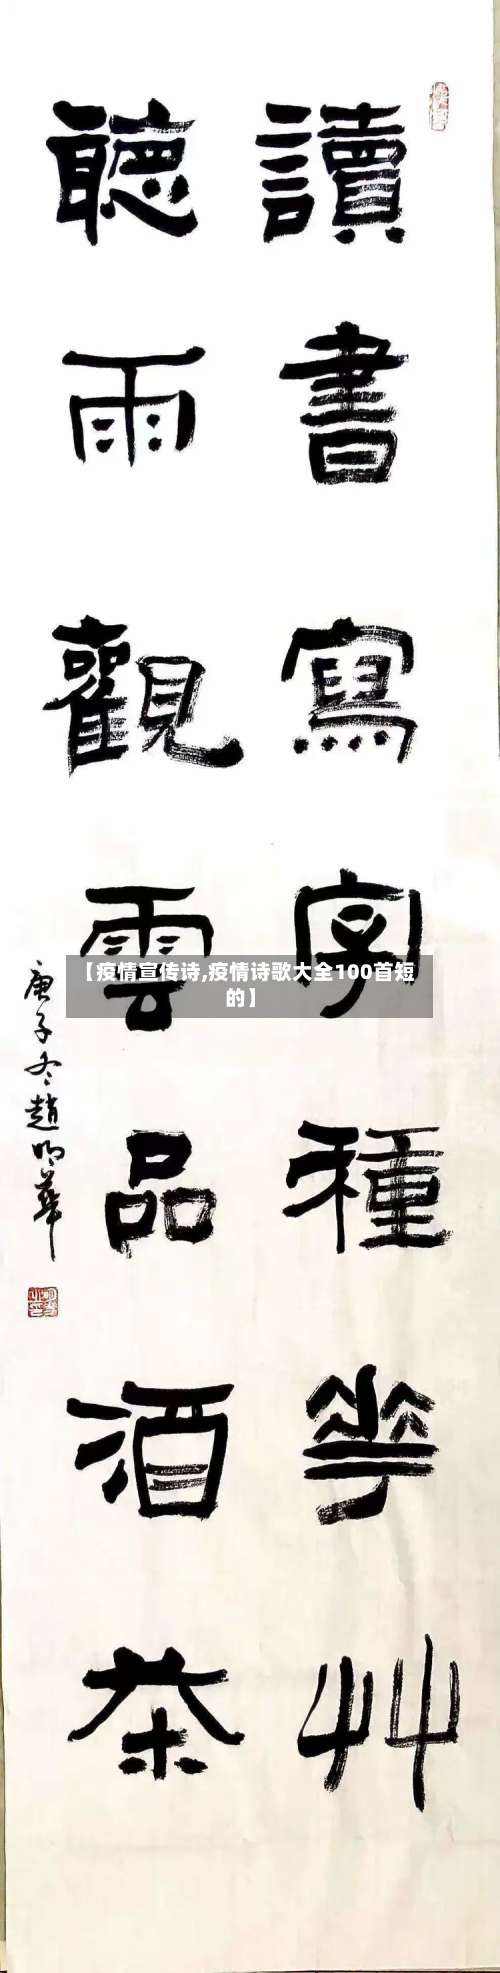 讀書寫字種花艸
聽雨觀雲品酒茶
庚子冬趙明華
【疫情宣传诗,疫情诗歌大全100首短
的】